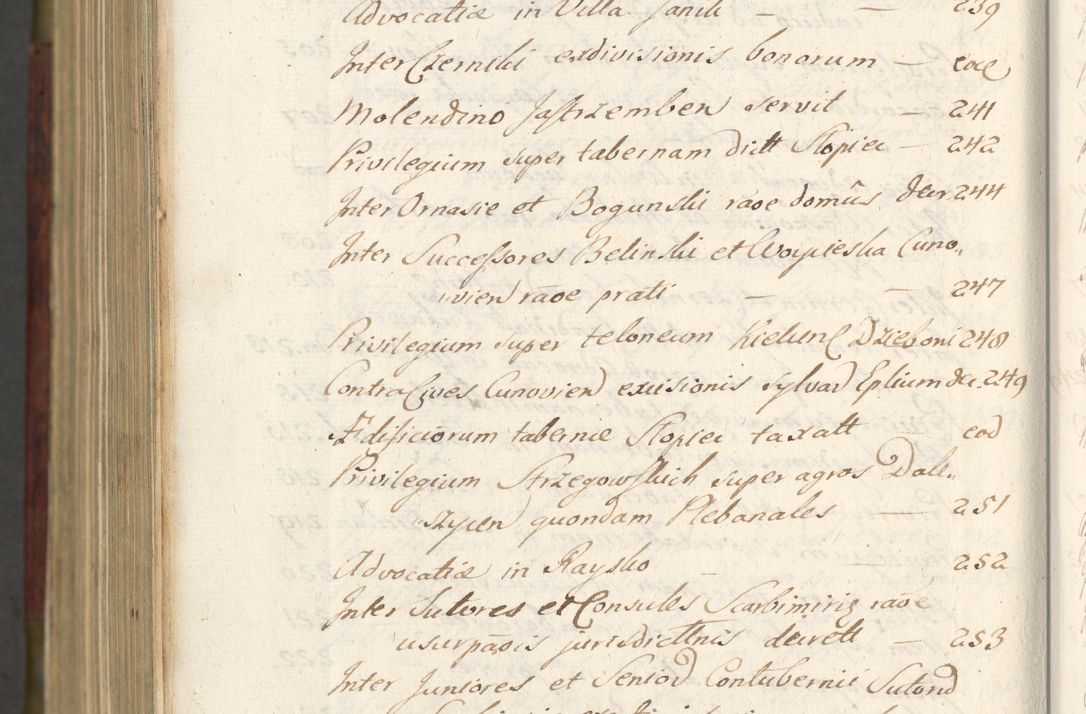 Advocatiæ in Villa Janik — — 239
Inter Czerniki exdivisionis bonorum — eod
Molendino Jastrzemben servit — 241
Privilegium super tabernam dictt Stopiec — 242
Inter Ornasie et Bogunski rãoe domûs decr 244
Inter Successores Belinski et Woycieska Cuno„
wien rãoe prati — — 247
Privilegium super teloneum Kielun Dzieboni 248
Contra Cives Cunovien excisionis sylvar Eplium de 249
Ædificiorum tabernæ Stopiec taxatt eod
Privilegium Strzegowskich super agros Dale„
szycen quondam Plebanales — 251
Advocatiæ in Raysko — — 252
Inter Sutores et Consules Scarbimiriẽ rãoe
usurpãois jurisdicttnis decrett — 253
Inter Juniores et Senior Contubernii Sutord